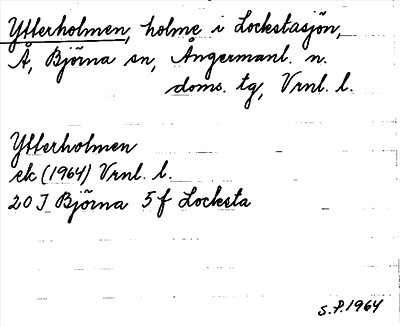 Ytterholmen, holme i Lockstasjön,
Å, Björna sn, Ångermanl. n.
doms. tg, Vrnl. l.
Ytterholmen
ek (1964) Vrnl. l.
20 I Björna 5 f Locksta
S.P. 1964